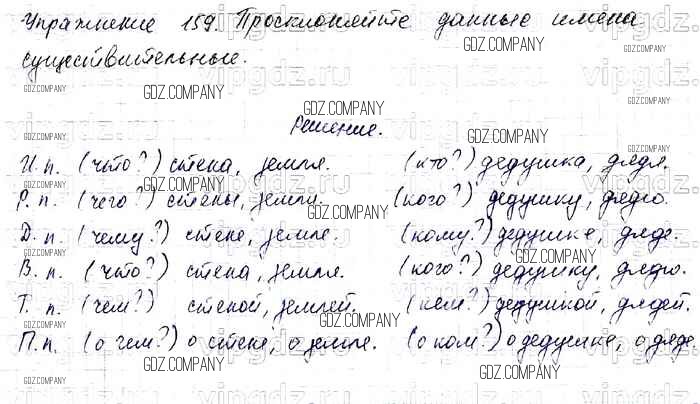 Упражнение 159. Просклоняйте данные имена
существительные.
Решение.
И. п. (что?) стена, земля. (кто?) дедушка, дядя.
Р. п. (чего?) стены, земли. (кого?) дедушку, дядю.
Д. п. (чему?) стене, земле. (кому?) дедушке, дяде.
В. п. (что?) стена, земле. (кого?) дедушку, дядю.
Т. п. (чем?) стеной, землей. (кем?) дедушкой, дядей.
П. п. (о чем?) о стене, о земле. (о ком?) о дедушке, о дяде.
GDZ.COMPANY
vipgdz.ru